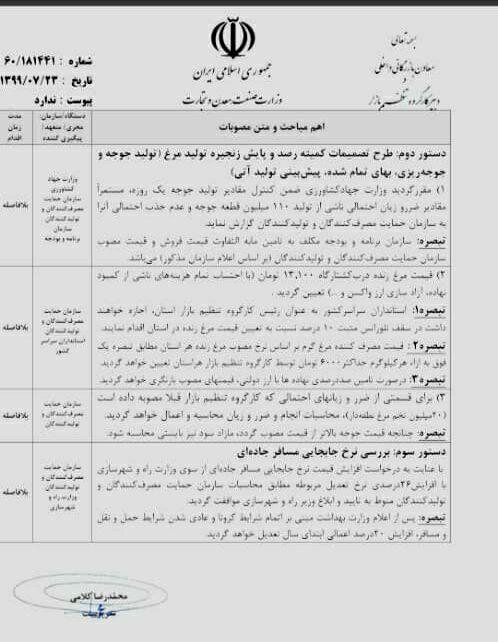 بسمه تعالی
معاون بازرگانی داخلی
و
دبیر کارگروه تنظیم بازار
جمهوری اسلامی ایران
وزارت صنعت، معدن و تجارت
شماره : ۶۰/۱۸۱۴۴۱
تاریخ : ۱۳۹۹/۰۷/۲۳
پیوست : ندارد
اهم مباحث و متن مصوبات
دستگاه/سازمان:
مجری/متعهد/
پیگیری کننده
مدت
زمان
اقدام
دستور دوم: طرح تصمیمات کمیته رصد و پایش زنجیره تولید مرغ (تولید جوجه و
جوجه‌ریزی، بهای تمام شده، پیش‌بینی تولید آتی)
۱) مقرر گردید وزارت جهادکشاورزی ضمن کنترل مقادیر تولید جوجه یک روزه، مستمراً
مقادیر ضررو زیان احتمالی ناشی از تولید ۱۱۰ میلیون قطعه جوجه و عدم جذب احتمالی آنرا
به سازمان حمایت مصرف‌کنندگان و تولیدکنندگان گزارش نماید.
تبصره: سازمان برنامه و بودجه مکلف به تامین مابه التفاوت قیمت فروش و قیمت مصوب
سازمان حمایت مصرف‌کنندگان و تولیدکنندگان (بر اساس اعلام سازمان مذکور) می‌باشد.
وزارت جهاد
کشاورزی
سازمان حمایت
مصرف‌کنندگان و
تولیدکنندگان
سازمان
برنامه و بودجه
بلافاصله
۲) قیمت مرغ زنده درب‌کشتارگاه ۱۳,۱۰۰ تومان (با احتساب تمام هزینه‌های ناشی از کمبود
نهاده، آزاد سازی ارز واکسن و ...) تعیین گردید.
تبصره۱: استانداران سراسرکشور به عنوان رئیس کارگروه تنظیم بازار استان، اجازه خواهند
داشت در سقف تلورانس مثبت ۱۰ درصد نسبت به تعیین قیمت مرغ زنده در استان اقدام نمایند.
تبصره۲: قیمت مصرف کننده مرغ گرم بر اساس نرخ مصوب مرغ زنده هر استان مطابق تبصره یک
فوق به ازاء هرکیلوگرم حداکثر ۶۰۰۰ تومان توسط کارگروه تنظیم بازار هراستان تعیین خواهد گردید.
تبصره۳: درصورت تامین صددرصدی نهاده ها با ارز دولتی، قیمتهای مصوب بازنگری خواهد گردید.
سازمان حمایت
مصرف‌کنندگان و
تولیدکنندگان
استانداران سراسر
کشور
بلافاصله
۳) برای قسمتی از ضرر و زیانهای احتمالی که کارگروه تنظیم بازار قبلا مصوبه داده است
(۲۰میلیون تخم مرغ نطفه‌دار)، محاسبات انجام و ضرر و زیان محاسبه و اعمال خواهد گردید.
تبصره: چنانچه قیمت جوجه بالاتر از قیمت مصوب گردد، مازاد سود نیز بایستی محاسبه شود.
سازمان حمایت
مصرف‌کنندگان و
تولیدکنندگان
بلافاصله
دستور سوم: بررسی نرخ جابجایی مسافر جاده‌ای
با عنایت به درخواست افزایش قیمت نرخ جابجایی مسافر جاده‌ای از سوی وزارت راه و شهرسازی
با افزایش ۲۶درصدی نرخ تعدیل مربوطه مطابق محاسبات سازمان حمایت مصرف‌کنندگان و
تولیدکنندگان منوط به تایید و ابلاغ وزیر راه و شهرسازی موافقت گردید.
تبصره: پس از اعلام وزارت بهداشت مبنی بر اتمام شرایط کرونا و عادی شدن شرایط حمل و نقل
و مسافر، افزایش ۲۰درصد اعمالی ابتدای سال تعدیل خواهد گردید.
سازمان حمایت
مصرف‌کنندگان و
تولیدکنندگان
وزارت راه و
شهرسازی
بلافاصله
محمدرضا کلامی